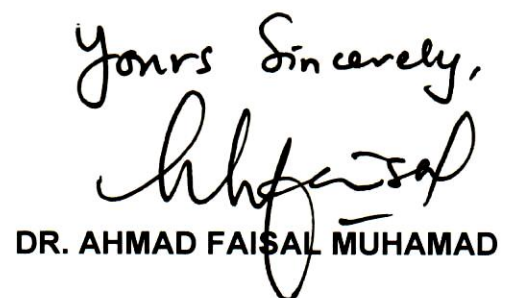 Yours Sincerely,
DR. AHMAD FAISAL MUHAMAD